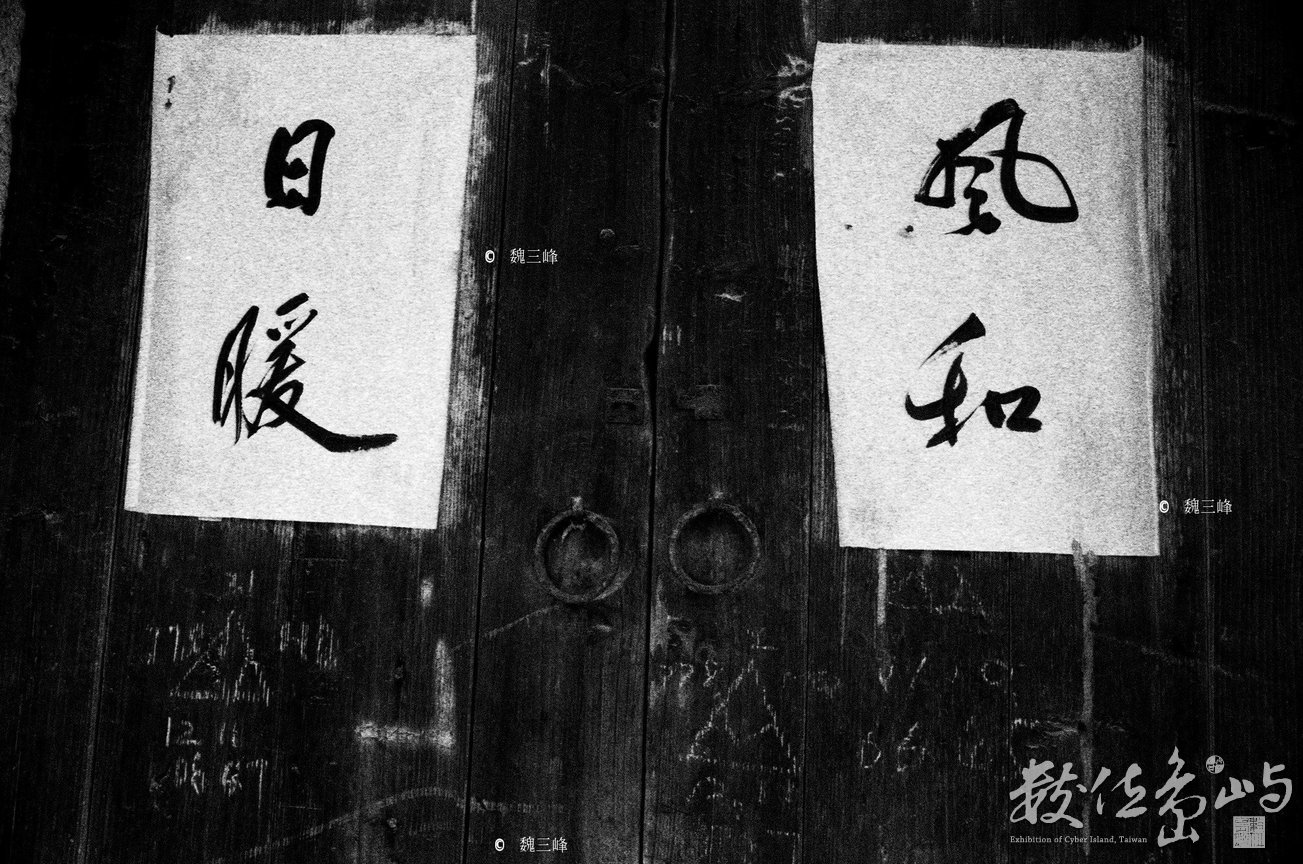 風和
日暖
© 魏三峰
© 魏三峰
© 魏三峰
數位島嶼
Exhibition of Cyber Island, Taiwan